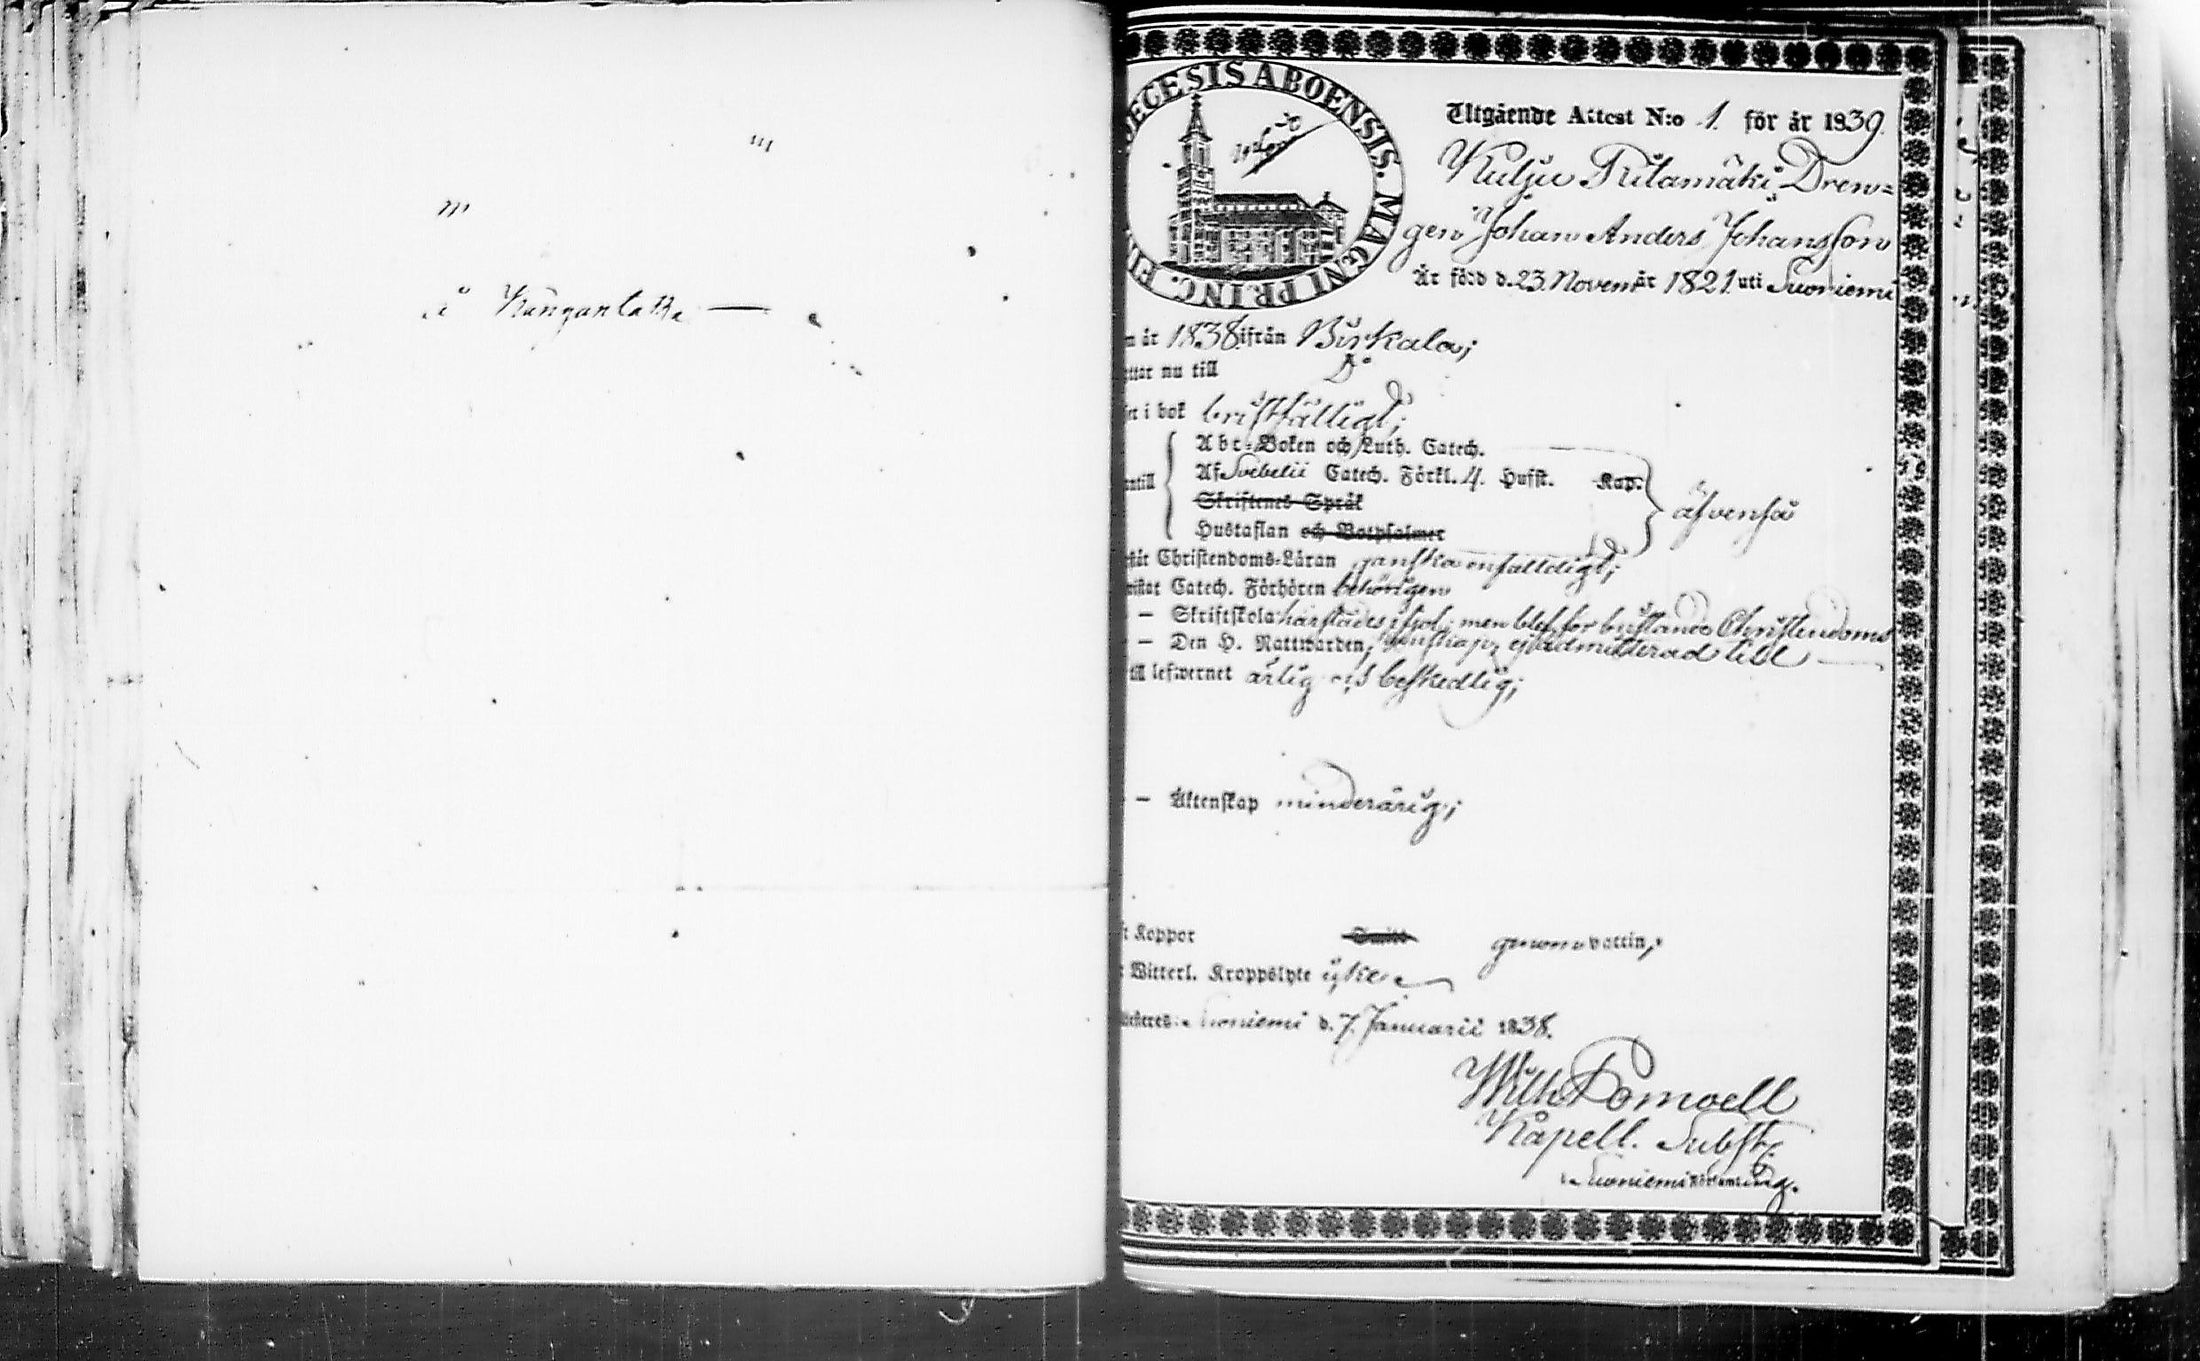 å Kangantaka —
DIECESIS ABOENSIS. MAGNI PRINC.
Utgående Attest N:o 1. för år 1839.
Kulju Riitamäki Dren=
gen Johan Anders Johansson
Är född d. 23. Novembr 1821 uti Suoniemi
år 1838 ifrån Birkala;
nu till D:o
i bok bristfälligt;
Abc-Boken och Luth. Catech.
Af Svebelii Catech. Förkl. 4. Hufst. Kap.
Skriftenes Språk
Hustaflan och Botpsalmer
äfvenså
Christendoms-Läran ganska enfalldigt;
Catech. Förhören behörigen
— Skriftskola härstädes men blef för bristande Christendoms
— Den H. Nattwarden, kunskap, ej admitterad till —
till lefwernet ärlig och beskedlig;
— Äktenskap minderårig;
Koppor genomvattin,
Witterl. Kroppslyte icke
Suoniemi d. 7. Januarii 1838.
Wilh Pomoell
Kapell. Subst.
i Suoniemi Församling.